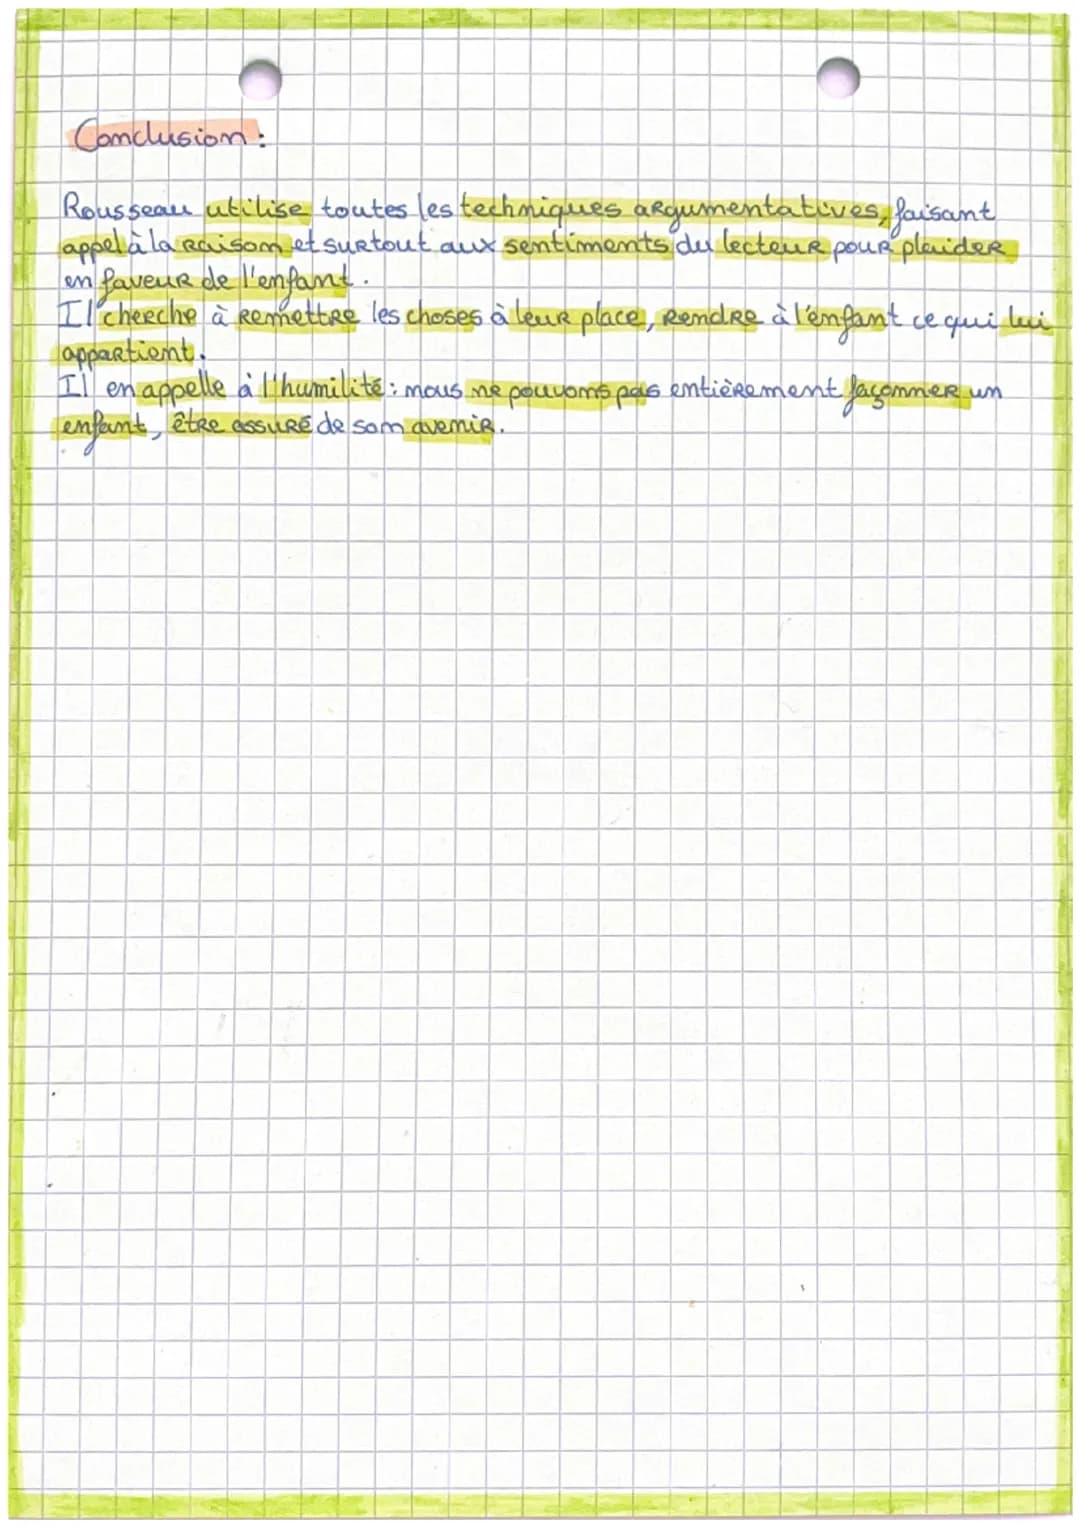 Conclusion :
Rousseau utilise toutes les techniques argumentatives, faisant
appel à la raison et surtout aux sentiments du lecteur pour plaider
en faveur de l'enfant.
Il cherche à remettre les choses à leur place, rendre à l'enfant ce qui lui
appartient.
Il en appelle à l'humilité : nous ne pouvons pas entièrement façonner un
enfant, être assuré de son avenir.